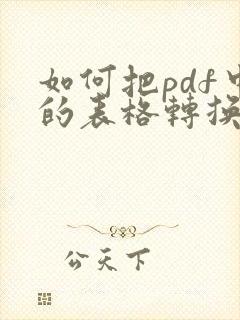 如何把pdf中
的表格轉換
公天下